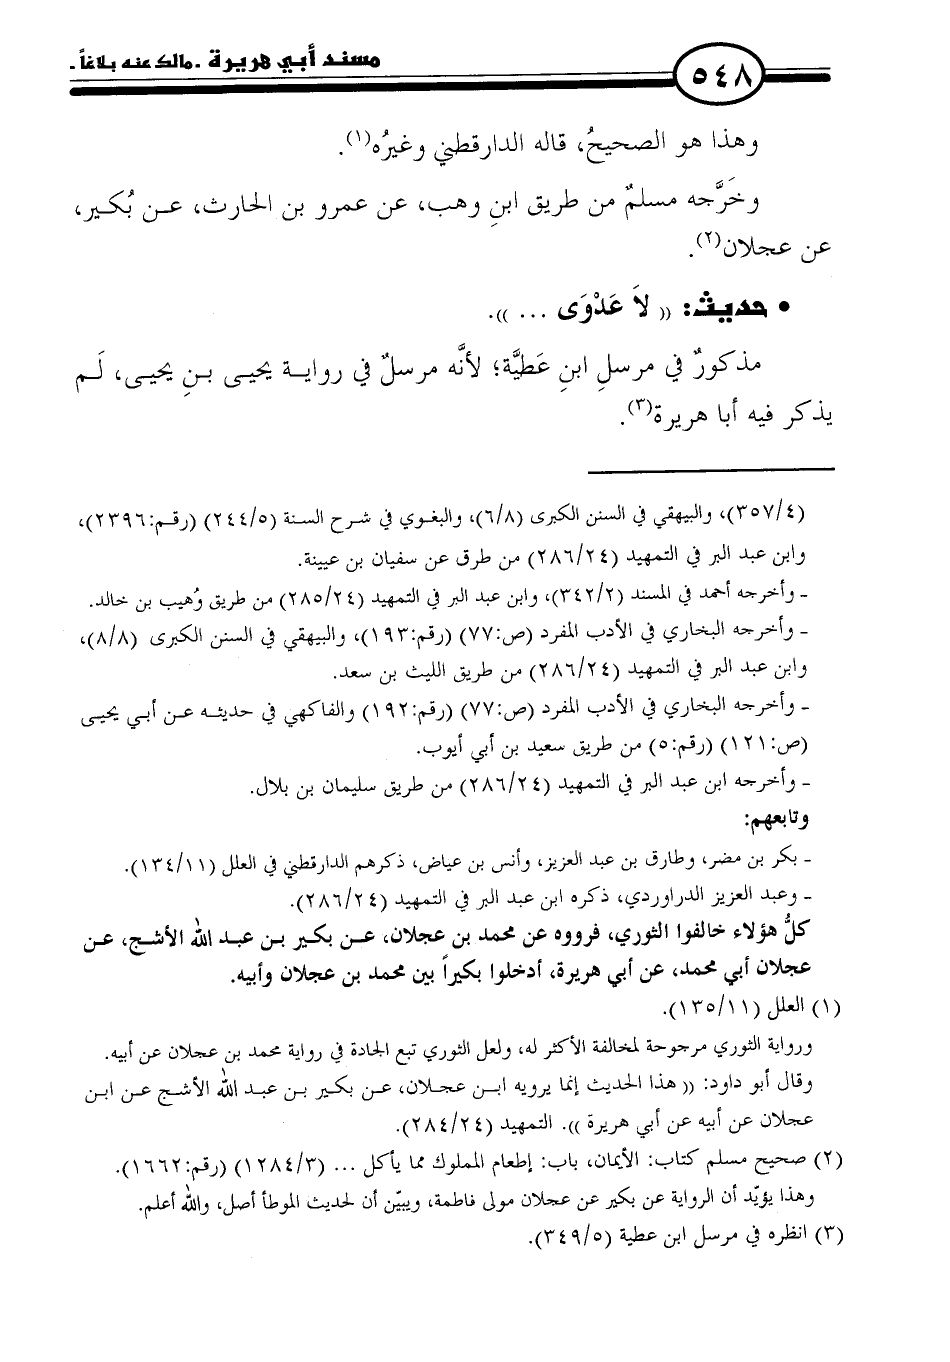 ٥٤٨
مسند أبي هريرة - مالك عنه بلاغاً -
وهذا هو الصحيحُ، قاله الدارقطني وغيرُه(١).
وخَرَّجه مسلمٌ من طريق ابنِ وهب، عن عمرو بن الحارث، عن بُكير،
عن عجلان(٢).
• حديث: (( لاَ عَدْوَى ... )).
مذكورٌ في مرسلِ ابنِ عَطيَّة؛ لأنَّه مرسلٌ في رواية يحيى بنِ يحيى، لَم
يذكر فيه أبا هريرة(٣).
(٣٥٧/٤)، والبيهقي في السنن الكبرى (٦/٨)، والبغوي في شرح السنة (٢٤٤/٥) (رقم:٢٣٩٦)،
وابن عبد البر في التمهيد (٢٨٦/٢٤) من طرق عن سفيان بن عيينة.
- وأخرجه أحمد في المسند (٣٤٢/٢)، وابن عبد البر في التمهيد (٢٨٥/٢٤) من طريق وُهيب بن خالد.
- وأخرجه البخاري في الأدب المفرد (ص:٧٧) (رقم:١٩٣)، والبيهقي في السنن الكبرى (٨/٨)،
وابن عبد البر في التمهيد (٢٨٦/٢٤) من طريق الليث بن سعد.
- وأخرجه البخاري في الأدب المفرد (ص:٧٧) (رقم:١٩٢) والفاكهي في حديثه عن أبي يحيى
(ص:١٢١) (رقم:٥) من طريق سعيد بن أبي أيوب.
- وأخرجه ابن عبد البر في التمهيد (٢٨٦/٢٤) من طريق سليمان بن بلال.
وتابعهم:
- بكر بن مضر، وطارق بن عبد العزيز، وأنس بن عياض، ذكرهم الدارقطني في العلل (١٣٤/١١).
- وعبد العزيز الدراوردي، ذكره ابن عبد البر في التمهيد (٢٨٦/٢٤).
كلُّ هؤلاء خالفوا الثوري، فرووه عن محمد بن عجلان، عن بكير بن عبد الله الأشج، عن
عجلان أبي محمد، عن أبي هريرة، أدخلوا بكيراً بين محمد بن عجلان وأبيه.
(١) العلل (١٣٥/١١).
ورواية الثوري مرجوحة لمخالفة الأكثر له، ولعل الثوري تبع الجادة في رواية محمد بن عجلان عن أبيه.
وقال أبو داود: (( هذا الحديث إنما يرويه ابن عجلان، عن بكير بن عبد الله الأشج عن ابن
عجلان عن أبيه عن أبي هريرة )). التمهيد (٢٨٤/٢٤).
(٢) صحيح مسلم كتاب: الأيمان، باب: إطعام المملوك مما يأكل ... (١٢٨٤/٣) (رقم:١٦٦٢).
وهذا يؤيّد أن الرواية عن بكير عن عجلان مولى فاطمة، ويبيّن أن لحديث الموطأ أصل، والله أعلم.
(٣) انظره في مرسل ابن عطية (٣٤٩/٥).